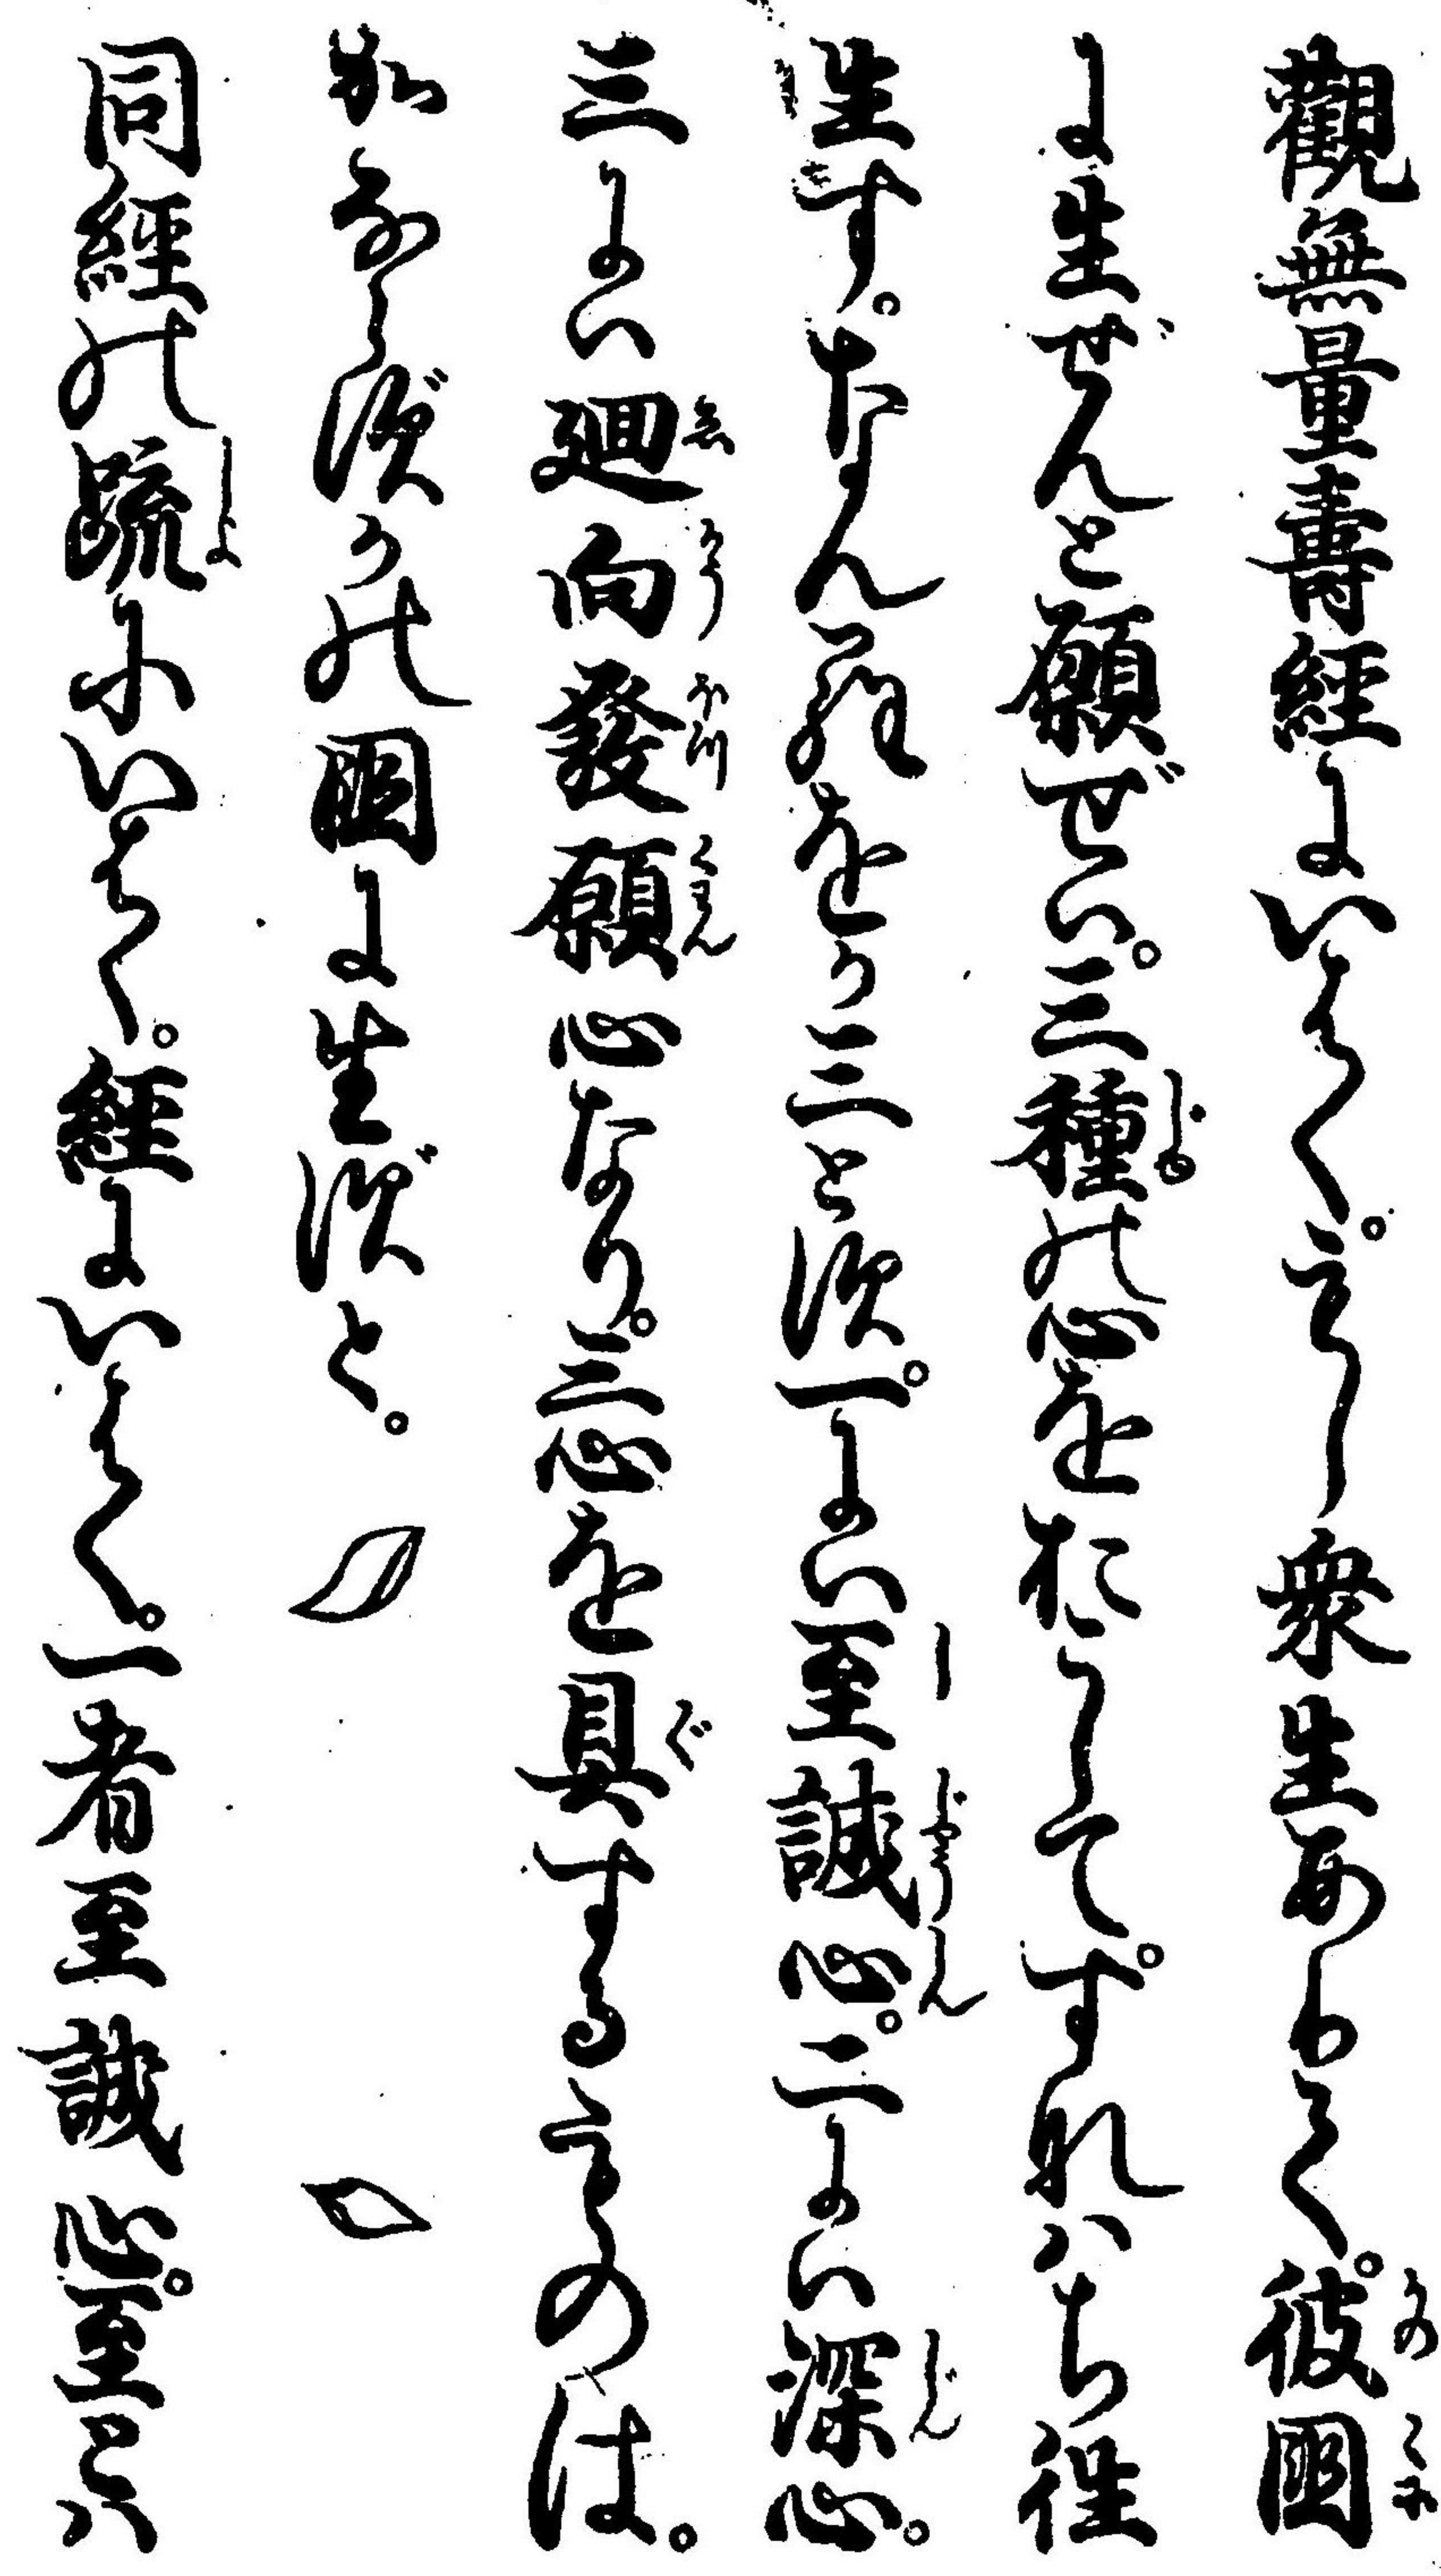 觀無量壽經にいはく。もし衆生ありて。彼國
に生ぜんと願ぜは。三種の心をおこして。すなはち往
生す。なんらをか三とす。一には至誠心。二には深心。
三には廻向發願心なり。三心を具するものは。
かならずかの国に生ずと。
同經の疏にいはく。經にいはく。一者至誠心。至とは